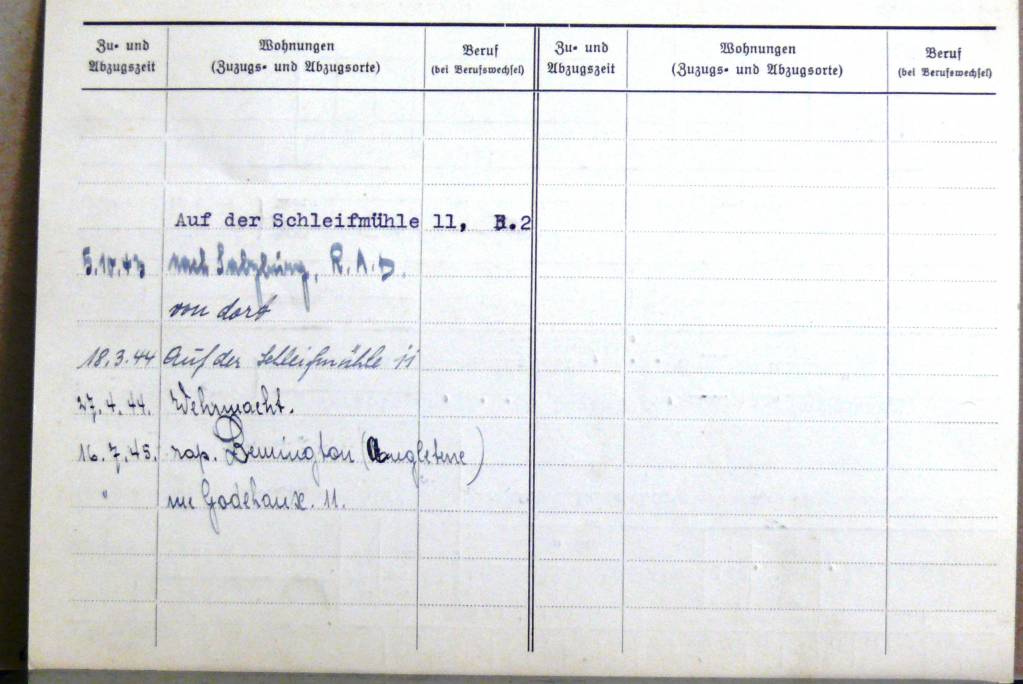 Zu- und Abzugszeit
Wohnungen
(Zuzugs- und Abzugsorte)
Beruf
(bei Berufswechsel)
Zu- und Abzugszeit
Wohnungen
(Zuzugs- und Abzugsorte)
Beruf
(bei Berufswechsel)
Auf der Schleifmühle 11, .2
nach Salzburg, R.A.D.
von dort
18.3.44 Auf der Schleifmühle 11
27.4.44. Wehrmacht.
16.7.45. rap. (Angleterre)
" rue Godehaux. 11.